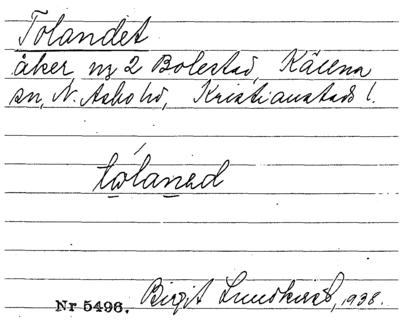 Tolandet
åker, nr 2 Bolestad, Källna
sn, N. Åsbo hd, Kristianstads l.
tolanəd
Nr 5496. Birgit Lundkvist, 1938.